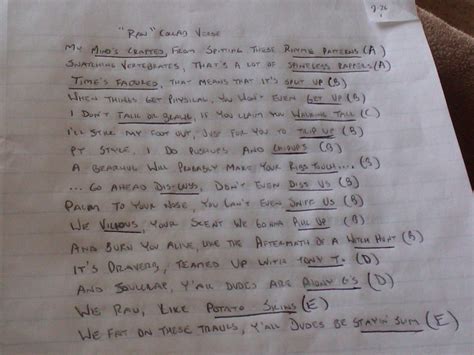 9-26
"Raw" Collab Verse
My Mind's Crafted, From Spitting These Rhyme Patterns (A)
Snatching Vertebrates, That's a lot of Spineless Rappers (A)
Time's Factured, that means that it's split up (B)
When things get physical, you won't even get up (B)
I don't talk or brawl, if you claim you walking tall (C)
I'll still my foot out, just for you to trip up (B)
PT style, I do pushups and chinups (B)
A Bearhug will probably make your ribs touch.... (B)
... Go ahead Discuss, don't even diss us (B)
Palm to your nose, you can't even sniff us (B)
We Vilrous, your scent we gonna pick up (B)
And burn you alive, like the aftermath of a witch hunt (B)
It's Draverb, teamed up with Tony T. (D)
And Soulclap, y'all dudes are phony G's (D)
We Raw, like Potato Skins (E)
We fat on these tracks, y'all dudes be stayin' slim (E)